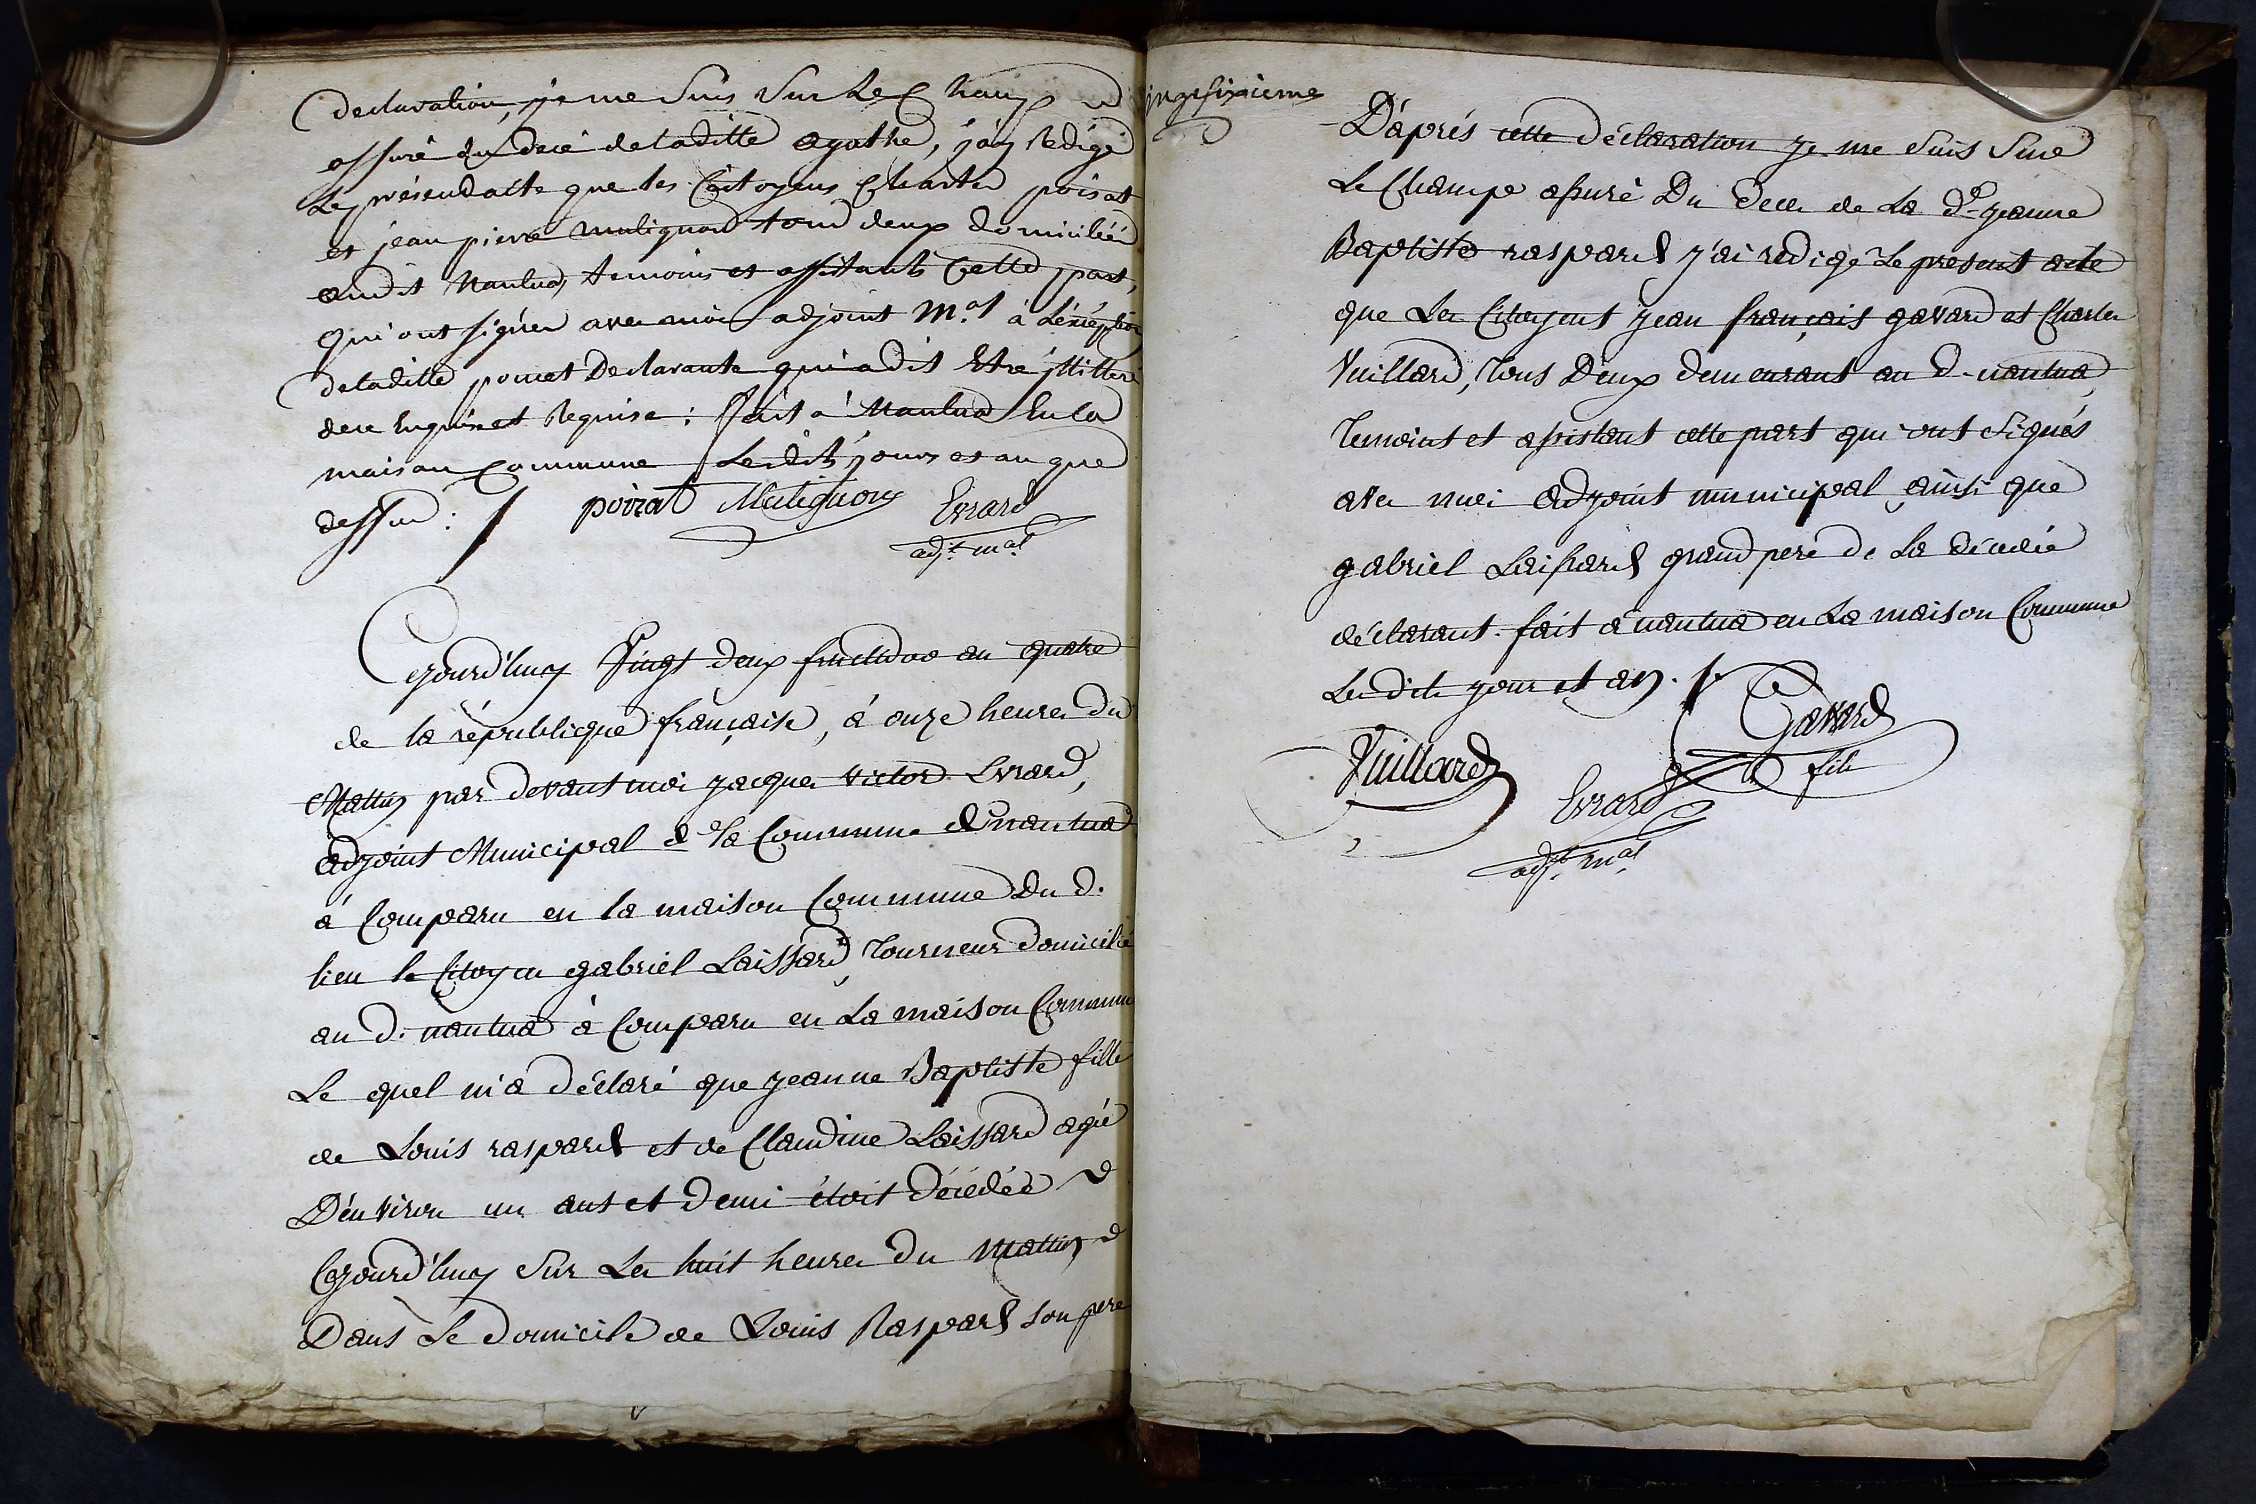 declaration, je me suis sur le champ
assuré du decè de laditte agathe, j'ay redigé
le présend acte que les Citoyens Charles poizat
et jean pierre matignon tous deux domiciliés
audit Nantua, temoins et assistants cette part,
qui ont signés avec moi adjoint M.al à l'éxéption
deladitte pouret Declarante qui a dit Etre illitteré
dece enquise et Requise : fait à Nantua En la
maison Commune Les dits jours et an que
dessus :
poizat Matignon Evrard
adj.t m.al
Cejourd'huy Vingt deux fructidor an quatre
de la république française, à onze heures Du
Mattin par devant moi jacques Victor Evrard,
adjoint Municipal de la Commune de nantua
à Comparu en la maison Commune Du d.
lieu le Citoyen gabriel Laissard, Tourneur domicilié
au d. nantua à Comparu en La maison Commune
Le quel m'a déclaré que jeanne Baptiste fille
de Louis raspard et de Claudine Laissard agée
D'énviron un ans et demi étoit décédée
Cejourd'huy sur Les huit heures du Mattin
Dans Le domicile de Louis Raspard son pere
vingtsixieme
D'aprés cette déclaration je me suis sur
Le Champ assuré Du Deces de La d.e jeanne
Baptiste raspard j'ai redigé Le present acte
que Les Citoyens jean français gavard et Charles
Vuillard, Tous Deux demeurant au d. nantua,
Temoins et assistant cette part qui ont signés
avec moi adjoint municipal ainsi que
gabriel Laissard grand pere de La décedée
déclarant. fait à nantua en La maison Commune
Les dits jour et an.
Vuillard Evrard Gavard
fils
adj.t m.al